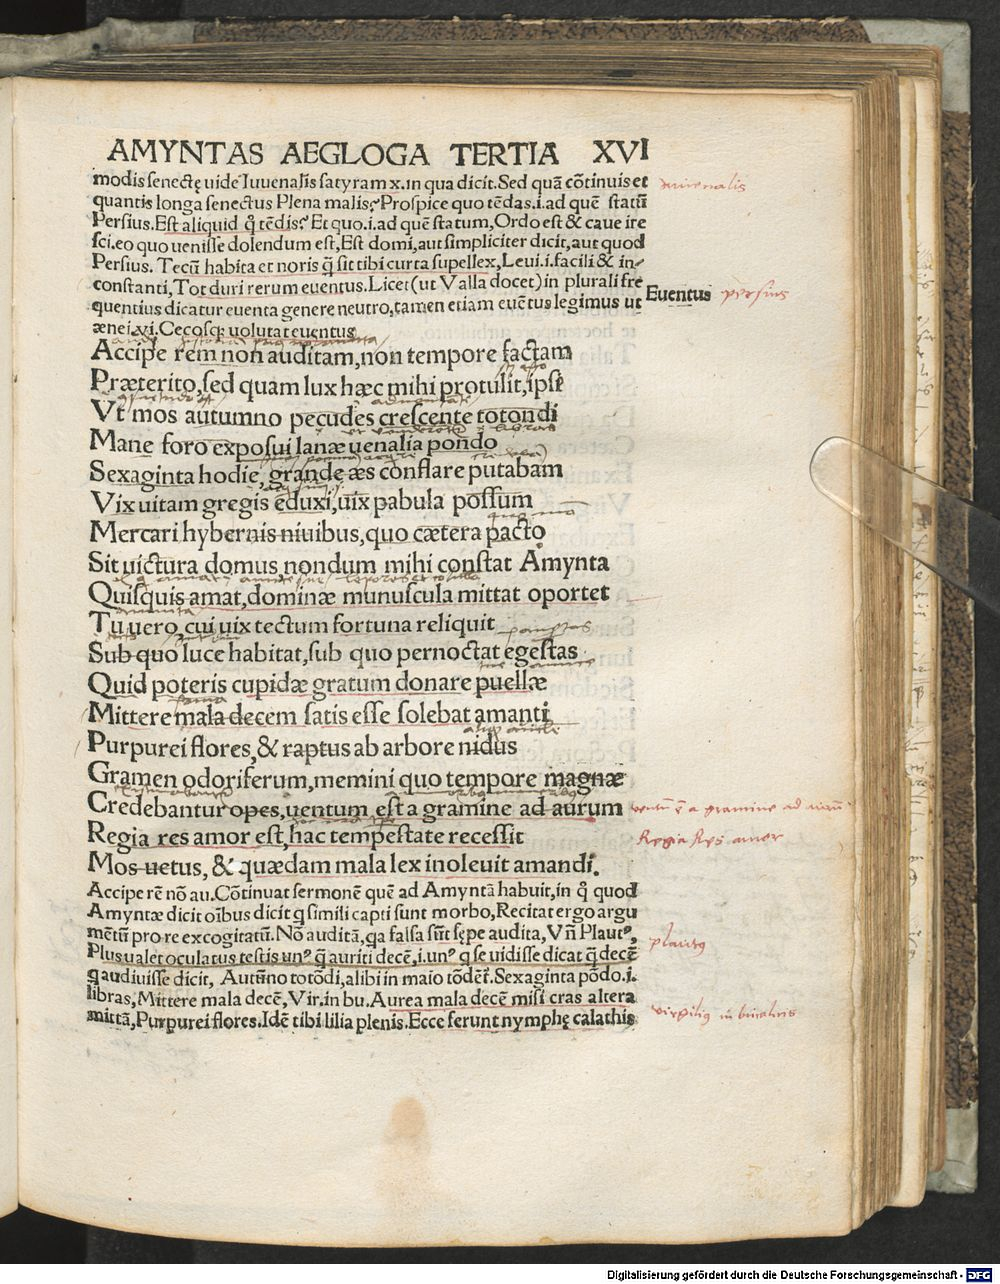 AMYNTAS AEGLOGA TERTIA XVI
modis senectę uide Iuuenalis satyram x. in qua dicit. Sed quã cõtinuis et
quantis longa senectus Plena malis? Prospice quo tẽdas .i. ad quẽ statũ
Persius. Est aliquid q̃ tẽdis? Et quo .i. ad quẽ statum, Ordo est & caue ire
sci. eo quo uenisse dolendum est, Est domi, aut simpliciter dicit, aut quod
Persius. Tecũ habita et noris q̃ sit tibi curta supellex, Leui .i. facili & in-
constanti, Tot duri rerum euentus. Licet (ut Valla docet) in plurali fre
quentius dicatur euenta genere neutro, tamen etiam euẽtus legimus ut
ænei. xi. Cecosq; uolutat euentus
Accipe rem non auditam, non tempore factam
Præterito, sed quam lux hæc mihi protulit, ipse
Vt mos autumno pecudes crescente totondi
Mane foro exposui lanæ uenalia pondo
Sexaginta hodie, grande æs conflare putabam
Vix uitam gregis eduxi, uix pabula possum
Mercari hybernis niuibus, quo cætera pacto
Sit uictura domus nondum mihi constat Amynta
Quisquis amat, dominæ munuscula mittat oportet
Tu uero cui uix tectum fortuna reliquit
Sub quo luce habitat, sub quo pernoctat egestas
Quid poteris cupidæ gratum donare puellæ
Mittere mala decem satis esse solebat amanti
Purpurei flores, & raptus ab arbore nidus
Gramen odoriferum, memini quo tempore magnæ
Credebantur opes, uentum est a gramine ad aurum
Regia res amor est, hac tempestate recessit
Mos uetus, & quædam mala lex inoleuit amandi.
Accipe rẽ nõ au. Cõtinuat sermonẽ quẽ ad Amyntã habuit, in q̃ quod
Amyntæ dicit oĩbus dicit q simili capti sunt morbo, Recitat ergo argu
mẽtũ pro re excogitatũ. Nõ auditã, qa falsa sũt sępe audita, Vñ Plautꝰ,
Plus ualet oculatus testis unꝰ q̃ auriti decẽ, i. unꝰ q se uidisse dicat q̃ decẽ
q audiuisse dicit, Autũno totõdi, alibi in maio tõdẽt. Sexaginta põdo .i.
libras, Mittere mala decẽ, Vir. in bu. Aurea mala decẽ misi cras altera
mittã, Purpurei flores. Idẽ tibi lilia plenis. Ecce ferunt nymphę calathis
Iuuenalis
Euentus
persius
uentũ ẽ a gramine ad aurũ
Regia Res amor
plautꝰ
virgiliꝰ in bucolicis
Digitalisierung gefördert durch die Deutsche Forschungsgemeinschaft - DFG